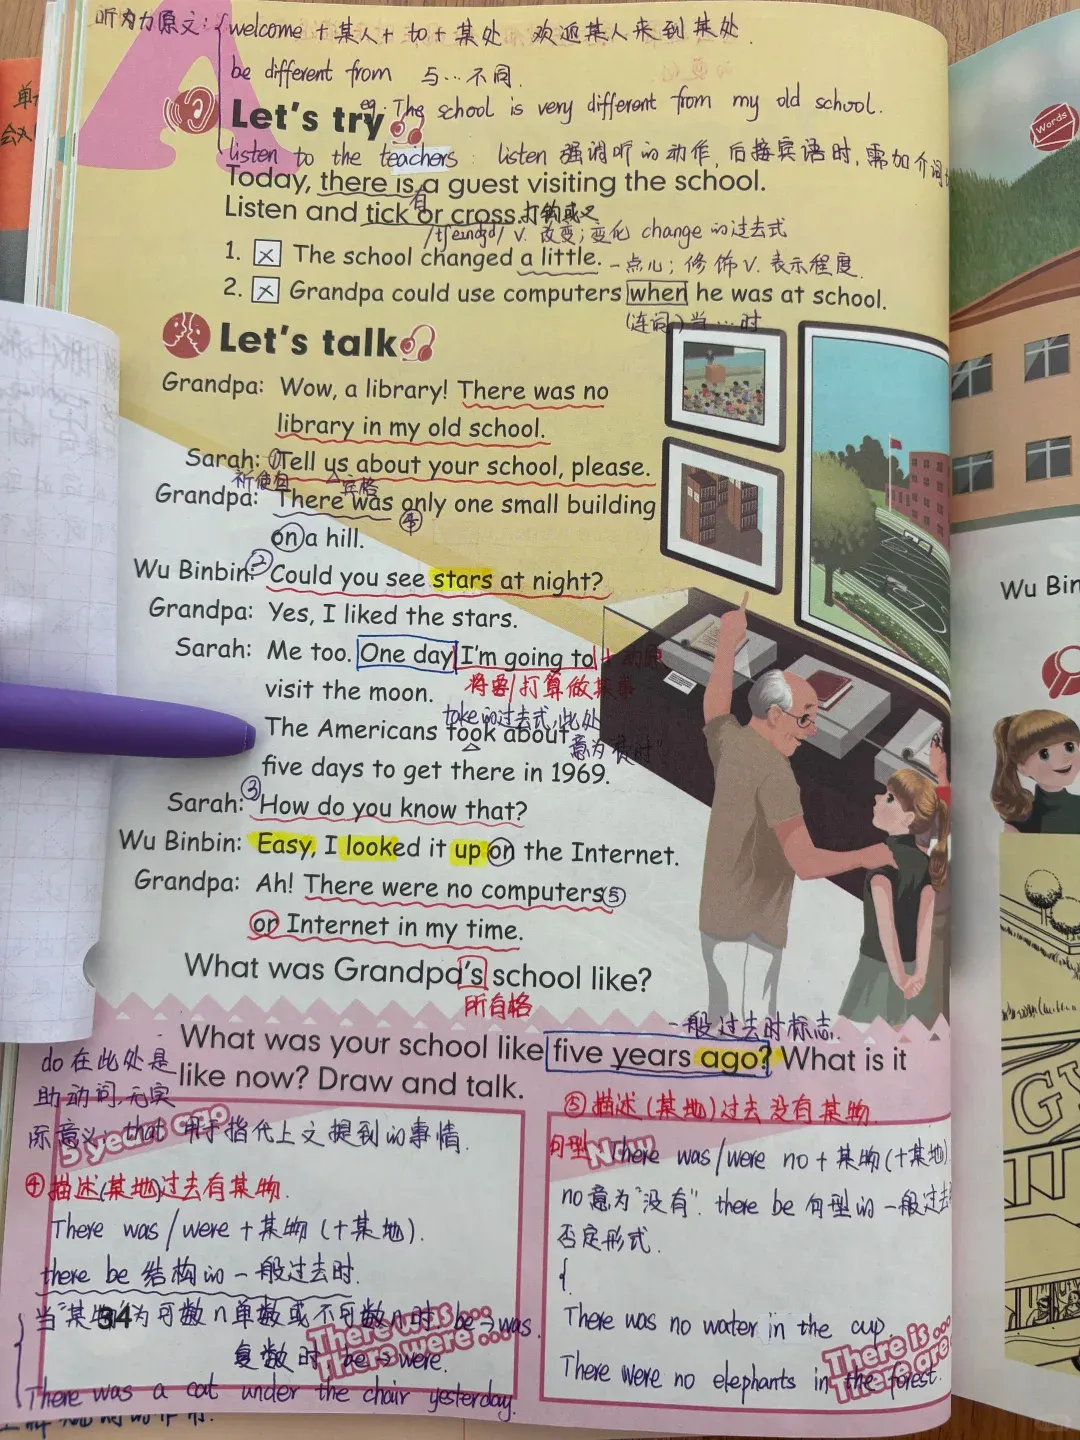 听力原文: welcome + 某人 + to + 某处 欢迎某人来到某处.
be different from 与…不同.
eg: The school is very different from my old school.
A
Let's try
listen to the teachers: listen 强调听的动作, 后接宾语时, 需加介词
Today, there is a guest visiting the school.
有
Listen and tick or cross. 打钩或叉
v. 改变; 变化 change 的过去式
1. × The school changed a little. 一点儿; 修饰 v. 表示程度.
2. × Grandpa could use computers when he was at school.
(连词) 当…时
Let's talk
Grandpa: Wow, a library! There was no
library in my old school.
Sarah: ① Tell us about your school, please.
祈使句 宾格
Grandpa: There was only one small building
④
on a hill.
Wu Binbin: ② Could you see stars at night?
Grandpa: Yes, I liked the stars.
Sarah: Me too. One day I'm going to + 动原
visit the moon. 将要/打算做某事
take 的过去式, 此处
The Americans took about
意为"花时"
five days to get there in 1969.
Sarah: ③ How do you know that?
Wu Binbin: Easy, I looked it up on the Internet.
Grandpa: Ah! There were no computers ⑤
or Internet in my time.
What was Grandpa's school like?
所有格
一般过去时标志.
What was your school like five years ago? What is it
like now? Draw and talk.
do 在此处是
助动词, 无实
际意义. that 用于指代上文提到的事情.
5 years ago
④ 描述(某地)过去有某物.
There was/were + 某物 (+某地).
there be 结构的一般过去时.
当"某物"为可数 n 单数或不可数 n 时, be → was.
复数时 be → were.
34
There was ...
There were ...
There was a cat under the chair yesterday.
⑤ 描述(某地)过去没有某物
句型 There was/were no + 某物(+某地)
Now
no 意为"没有". there be 句型的一般过去
否定形式.
There was no water in the cup.
There were no elephants in the forest.
There is ...
There are
Words
Wu Bin